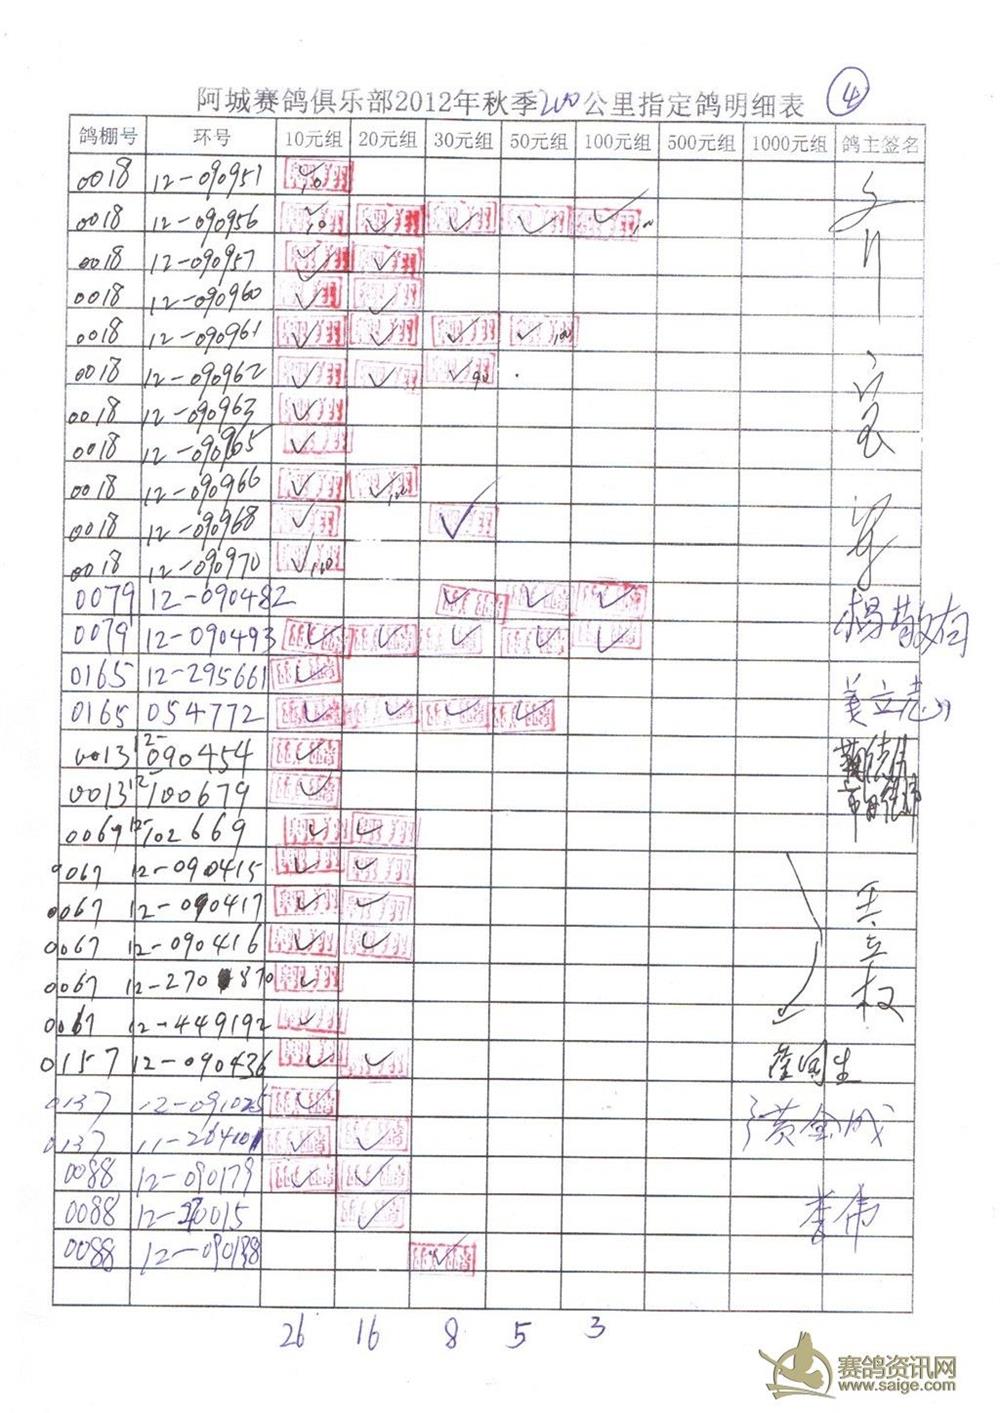 阿城赛鸽俱乐部2012年秋季200公里指定鸽明细表 ④
鸽棚号 环号 10元组 20元组 30元组 50元组 100元组 500元组 1000元组 鸽主签名
0018 12-090951 ✓
0018 12-090956 ✓ ✓ ✓ ✓ ✓
0018 12-090957 ✓ ✓
0018 12-090960 ✓ ✓
0018 12-090961 ✓ ✓ ✓ ✓
0018 12-090962 ✓ ✓ ✓
0018 12-090963 ✓
0018 12-090965 ✓
0018 12-090966 ✓ ✓
0018 12-090968 ✓ ✓
0018 12-090970 ✓
0079 12-090482 ✓ ✓ ✓
0079 12-090493 ✓ ✓ ✓ ✓ ✓ 杨敬有
0165 12-295661 ✓
0165 054772 ✓ ✓ ✓ ✓ 姜立志
0013 12-090454 ✓
0013 12-100679 ✓
0069 12-102669 ✓ ✓
0067 12-090415 ✓ ✓
0067 12-090417 ✓ ✓ 王立权
0067 12-090416 ✓ ✓
0067 12-270870 ✓
0067 12-449192 ✓
0157 12-090436 ✓ ✓
0137 12-091025 ✓
0137 11-264101 ✓ ✓ 黄金成
0088 12-090179 ✓ ✓
0088 12-20015 ✓ 李伟
0088 12-090138 ✓
26 16 8 5 3
赛鸽资讯网
www.saige.com